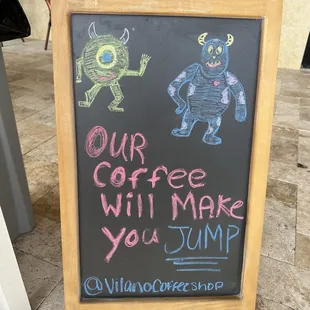 OUR
Coffee
Will MAKE
you JUMP
@VilanoCoffeeshop